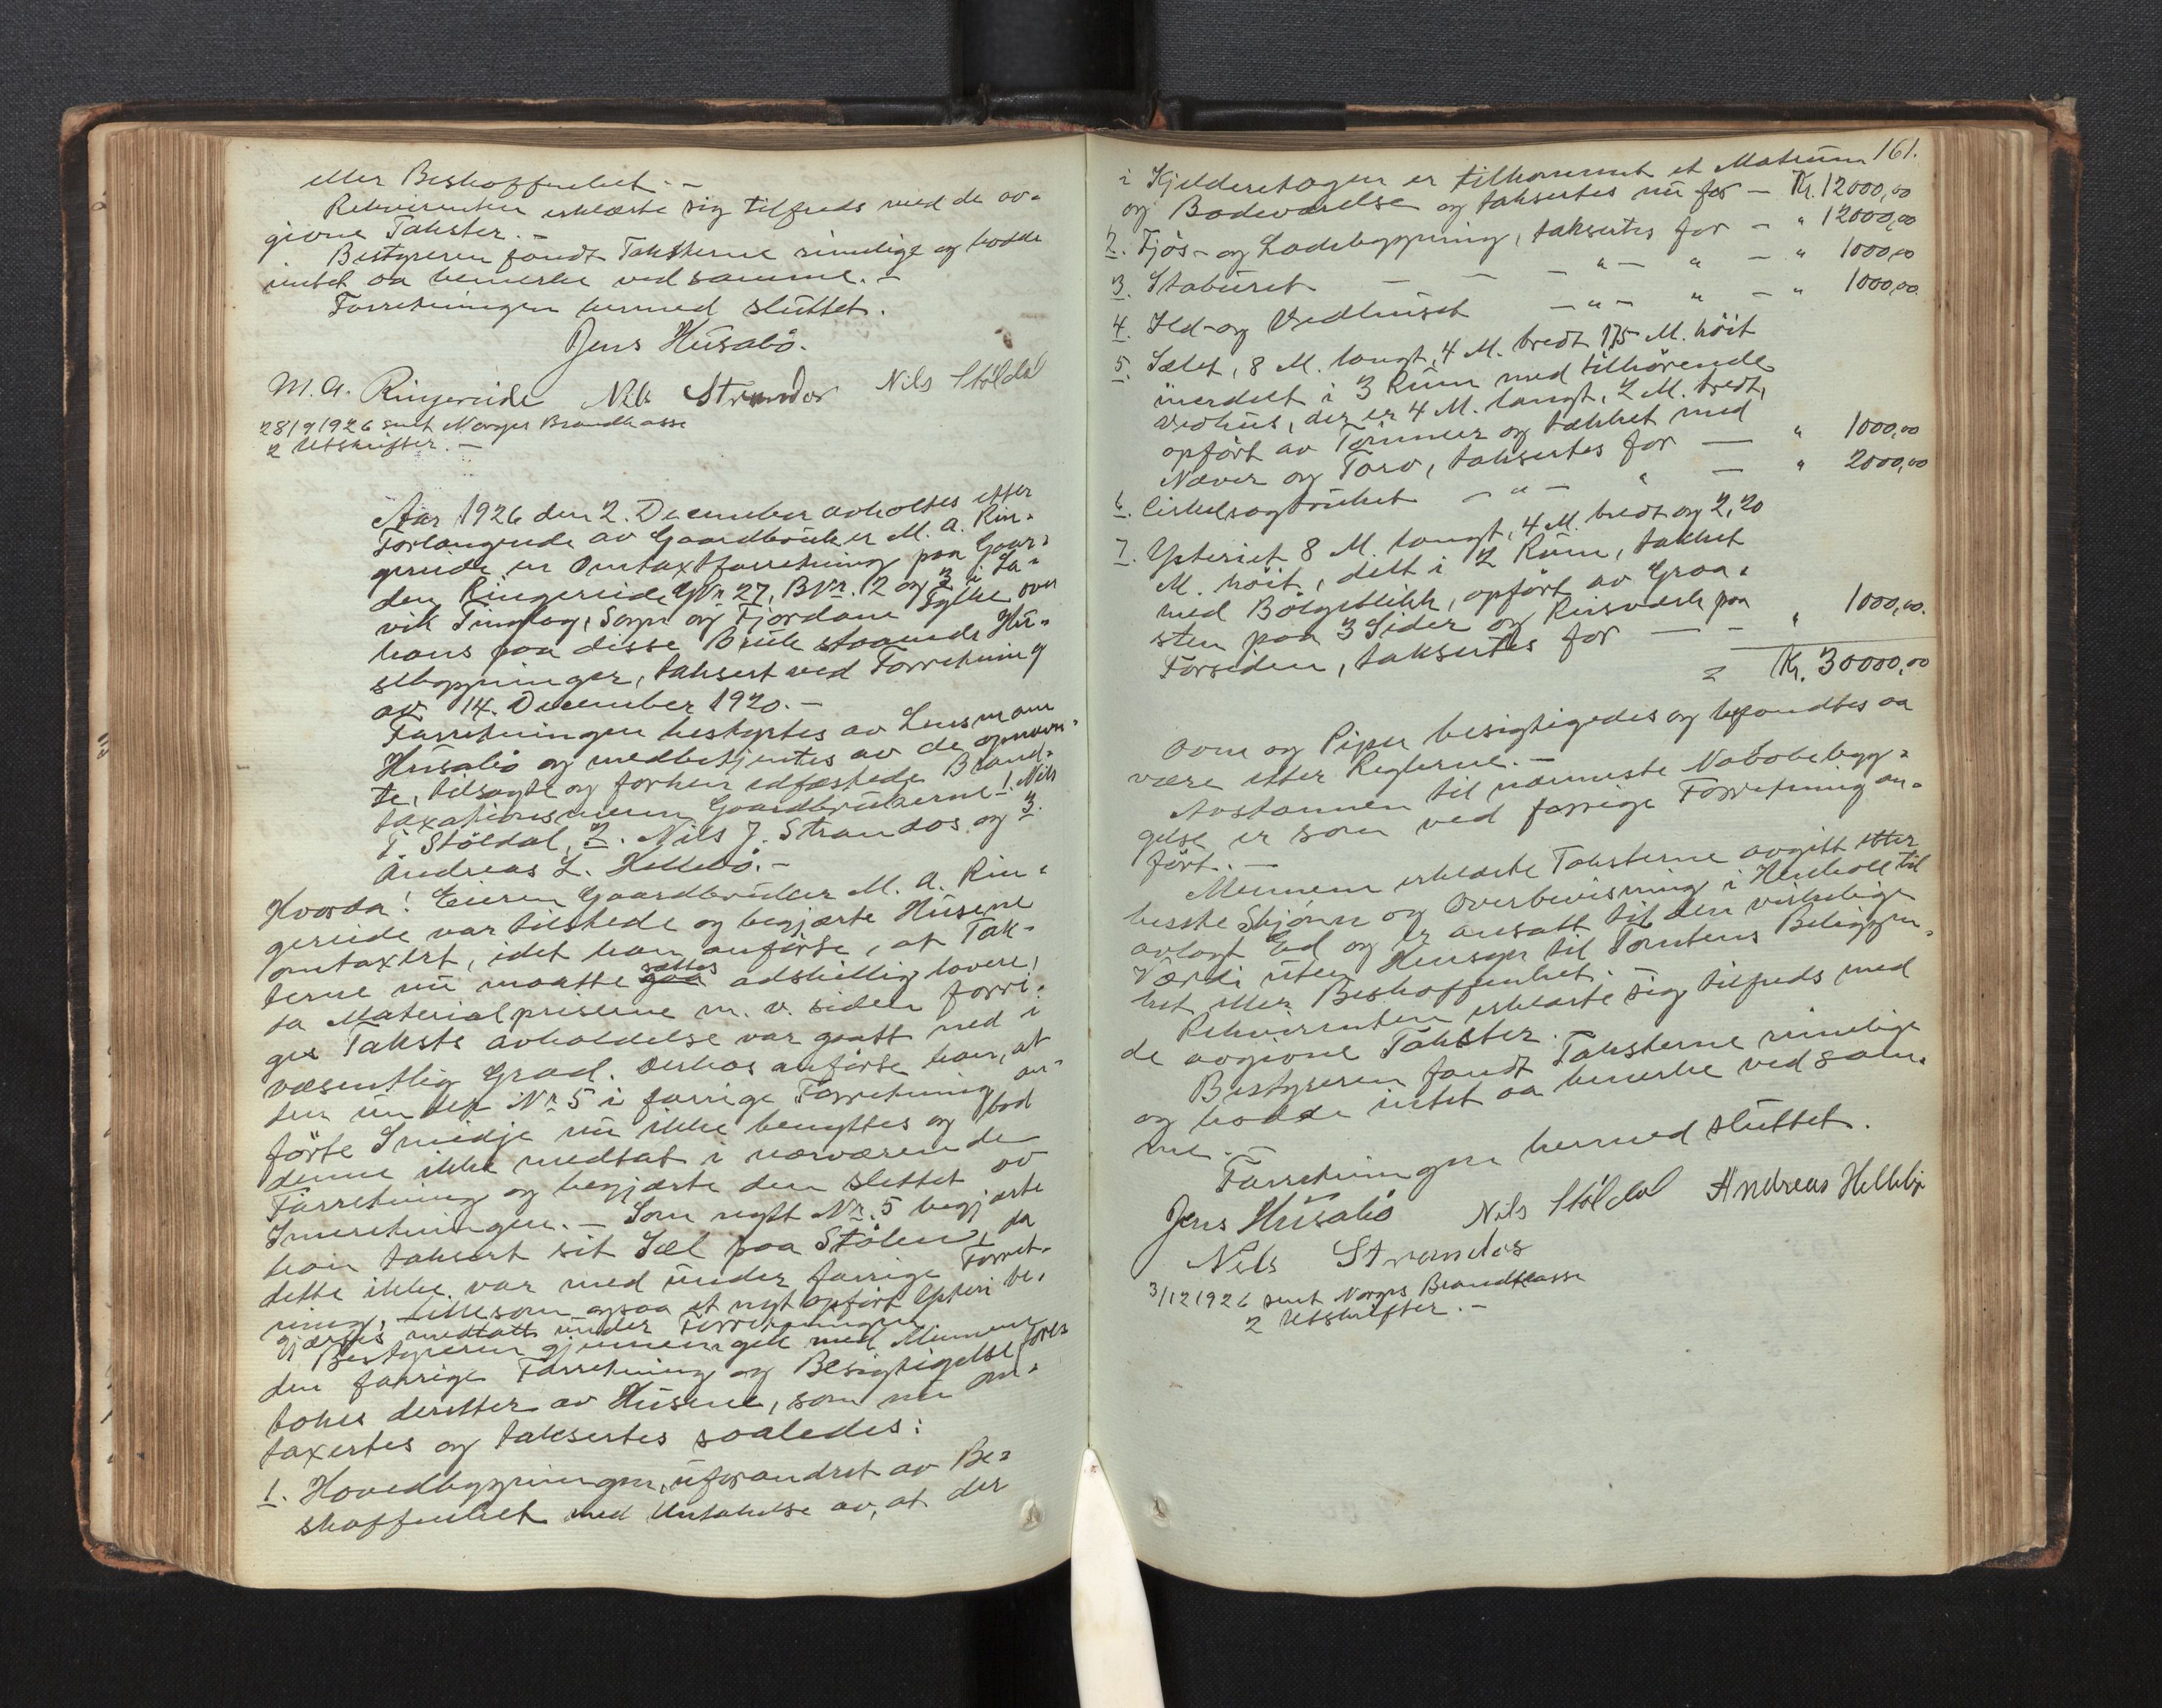 eller Beskaffenhet. —
Rekvirenten erklærte sig tilfreds med de av-
givne Takster. —
Bestyreren fandt Taksterne rimelige og hadde
intet aa bemerke ved samme. —
Forretningen hermed sluttet.
Jens Husabö.
M. A. Ringereide Nils Strandos Nils Stöldal
28/9 1926 sent Norges Brandkasse
2 Utskrifter. —
Aar 1926 den 2. December avholtes efter
Forlangende av Gaardbruker M. A. Rin-
gereide en Omtaxtforretning paa Gaar-
den Ringereide GNr. 27, BNr. 2 og 3 i La-
vik Tinglag, Sogn og Fjordane Fylke over
hans paa disse Bruk staaende Hu-
sebygninger, taksert ved Forretning
av 14. December 1920. —
Forretningen bestyrtes av Lensmann
Husabö og medbetjentes av de opnævn-
te, tilsagte og forhen edfæstede Brand-
taxationsmenn Gaardbrukerne 1. Nils
T. Stöldal, 2. Nils J. Strandos og 3.
Andreas L. Hellebö. —
Hvorda! Eieren Gaardbruker M. A. Rin-
gereide var tilstede og begjærte Husene
omtaxert, idet han anförte, at Tak-
terne nu maatte gaa sættes adskillig lavere,
da Materialpriserne m. v. siden forri-
ges Taksts avholdelse var gaatt ned i
væsentlig Grad. Derhos anförte han, at
den under Nr. 5 i forrige Forretning an-
förte Smidje nu ikke benyttes og bad
denne ikke medtat i nærværende
Forretning og begjærte den slettet av
Inneretningen. — Som nytt Nr. 5 begjærte
han taksert sit Sel paa Stölen, da
dette ikke var med under forrige Forret-
ning, likesom ogsaa et nyt opfört Ysteri be-
gjærtes medtatt under Forretningen
Bestyreren gjennemgik med Mennene
den forrige Forretning og Besigtigelse fores
tokes derefter av Husene, som nu om-
taxertes og taksertes saaledes:
1. Hovedbygningen, uforandret av Be-
skaffenhet med Untakelse av, at der
161.
i Kjelderetagen er tilkommet et Matrum
og Badeværelse og taksertes nu for — Kr. 12000,00
2. Fjös- og Ladebygning, taksertes for — " 12000,00
3. Staburet — — — " — " — " 1000,00
4. Ild- og Vedhuset — " — " — " 1000,00
5. Selet, 8 M. langt, 4 M. bredt 1,75 M. höit
inerdelt i 3 Rum med tilhörende
Vedhus, der er 4 M. langt, 2 M. bredt,
opfört av Tömmer og tækket med
Næver og Torv, taksertes for — " 1000,00
6. Cirkelsagbruket — " — " — " 2000,00
7. Ysteriet 8 M. langt, 4 M. bredt og 2,20
M. höit, delt i 2 Rum, takket
med Bölgeblikk, opfört av Graa-
sten paa 3 Sider og Reisverk paa
Forsiden, taksertes for — — " 1000,00.
= Kr. 30000,00
Ovne og Piper besigtigedes og befandtes aa
være etter Reglerne. —
Avstannen til nærmeste Nabobebyg-
gelse er som ved forrige Forretning an-
fört. —
Mennene erklærte Taksterne avgitt etter
beste Skjönn og Overbevisning i Henhold til
avlagt Ed og er ansatt til den virkelige
Værdi uten Hensyn til Tomtens Beliggen-
het eller Beskaffenhet.
Rekvirenten erklærte sig tilfreds med
de avgivne Takster.
Bestyreren fandt Taksterne rimelige
og hadde intet aa bemerke ved sam-
me. —
Forretningen hermed sluttet.
Jens Husabö Nils Stöldal Andreas Hellebö
Nils Strandos
3/12 1926 sent Norges Brandkasse
2 Utskrifter. —